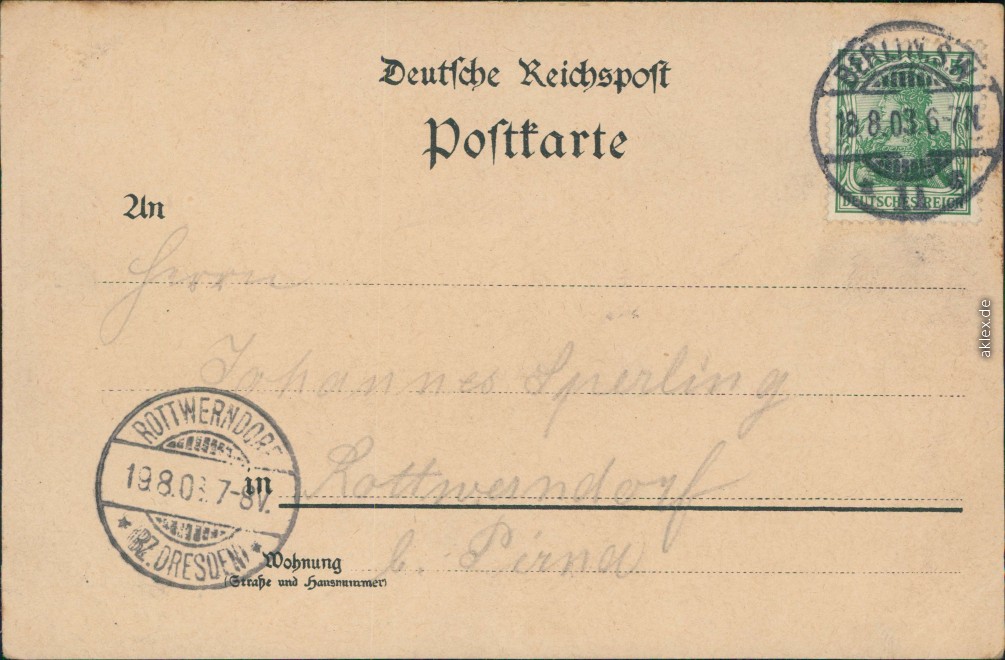 Deutsche Reichspost
Postkarte
BERLIN S.W.
18.8.03.6-7N.
* 11 *
DEUTSCHES REICH
An
Herrn
Johannes Sperling
in Rottwerndorf
b. Pirna
Wohnung
(Straße und Hausnummer)
ROTTWERNDORF
19.8.03 7-8V.
* (BZ.DRESDEN) *
aklex.de